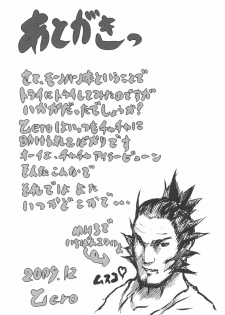 あとがきっ
さて、モンハン本ということで
トライにトライしてみたのですが
いかがだったでしょうか?
Zeroはいつもチャチャに
助けられてばかりです
オーイェ チャチャ アイラービューン
そんなこんなで
それでは また
いつかどこかで…
MH3で
2009.12
Zero